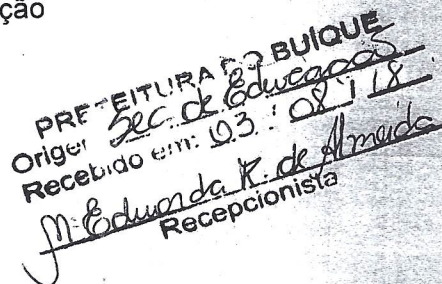 ção
PREFEITURA DO BUÍQUE
Origem Sec. de Educação
Recebido em: 03 / 08 / 18
Mª Eduarda K. de Almeida
Recepcionista